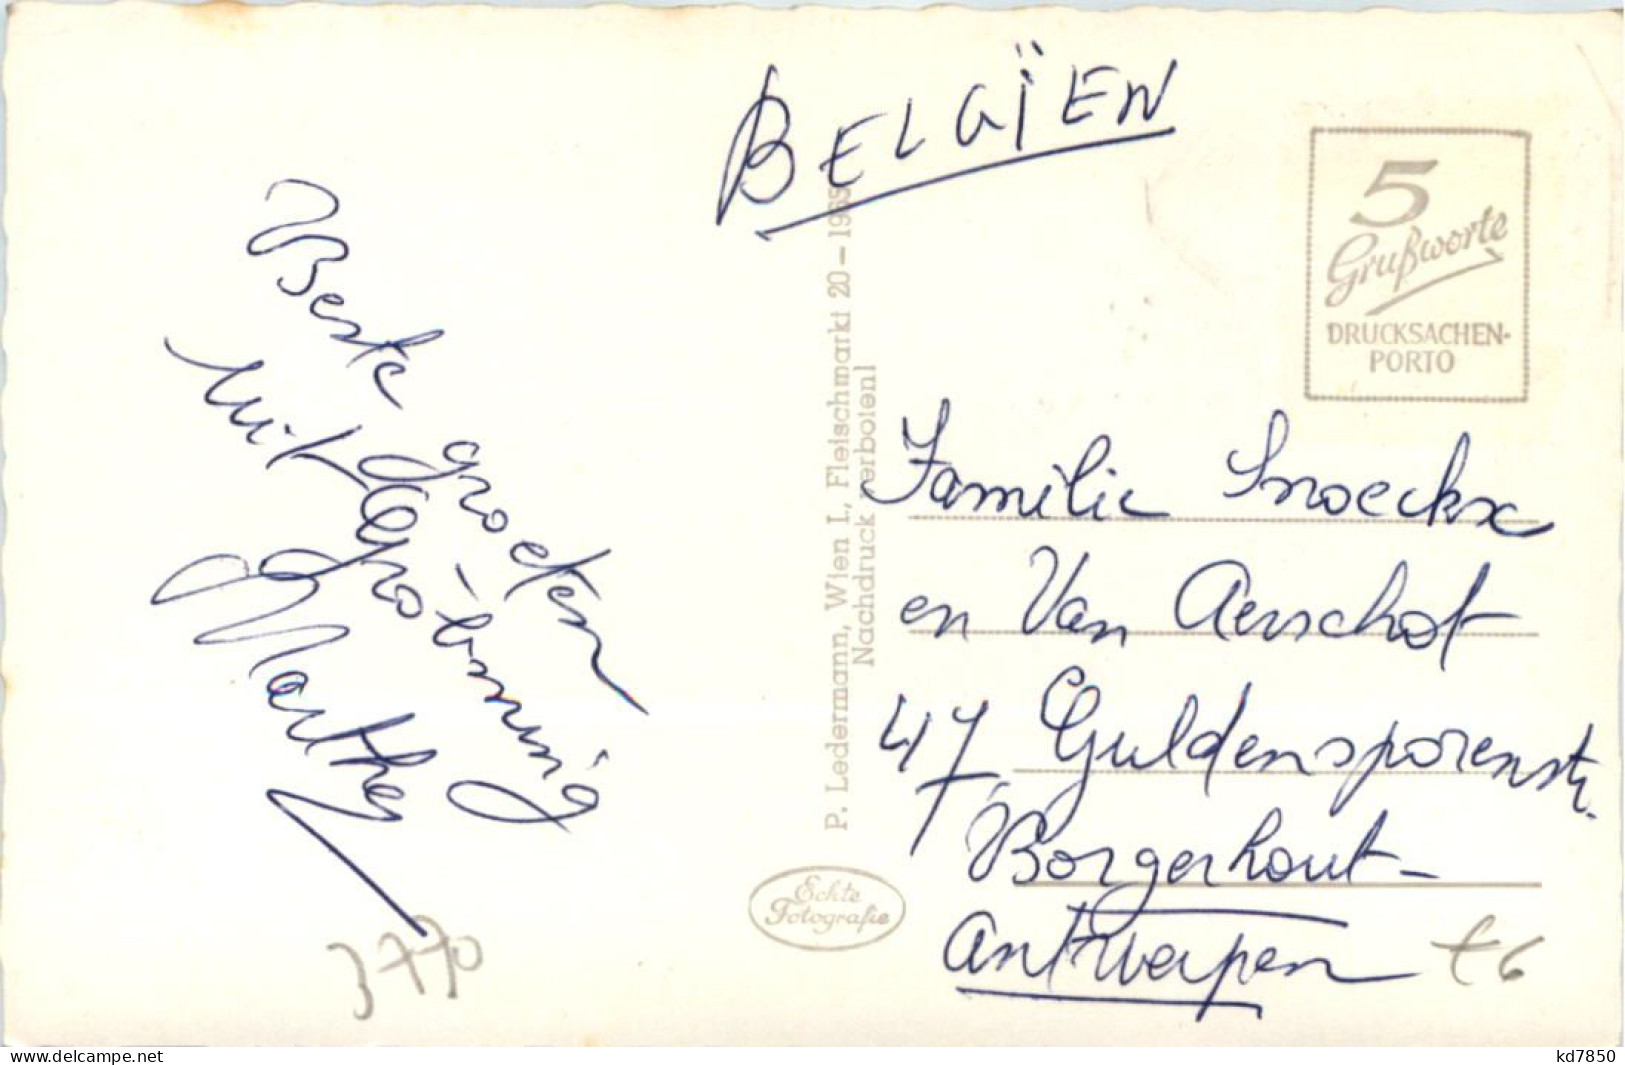 BELGÏEN
5
Grußworte
DRUCKSACHEN-
PORTO
Beste groeten
uit Gröbming
Marthe
P. Ledermann, Wien I., Fleischmarkt 20 – 1965
Nachdruck verboten!
Echte
Fotografie
Familie Snoeckx
en Van Aerschot
47 Guldensporenstr.
Borgerhout -
Antwerpen
3770
€6
www.delcampe.net
kd7850